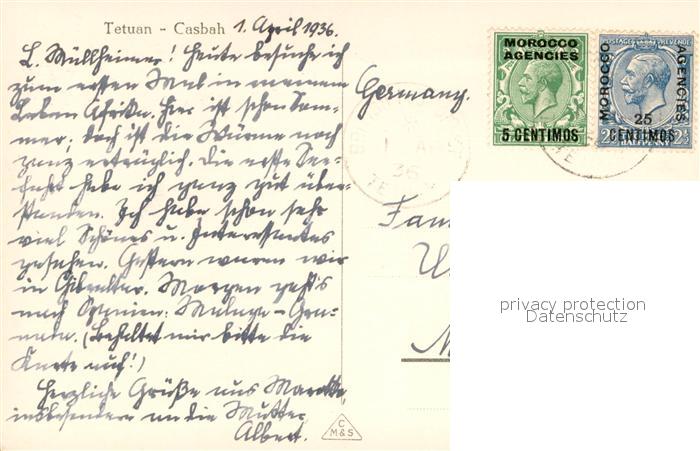 Tetuan - Casbah 1. April 1936.
L. Müllheimer! Heute besuche ich
zum ersten Mal in meinem
Leben Afrika. Hier ist schon Som-
mer; doch ist die Wärme noch
ganz erträglich. Die erste See-
fahrt habe ich ganz gut über-
standen. Ich habe schon sehr
viel Schönes u. Interessantes
gesehen. Gestern waren wir
in Gibraltar. Morgen geht's
nach Spanien: Malaga - Gra-
nada. (Behaltet mir bitte die
Karte auf!)
Herzliche Grüße aus Marokko,
insbesondere an die Mutter
Albert.
C
M&S
Germany.
MOROCCO
AGENCIES
5 CENTIMOS
POSTAGE REVENUE
MOROCCO
AGENCIES
25
CENTIMOS
HALFPENNY
36
Fam
U
M
privacy protection
Datenschutz